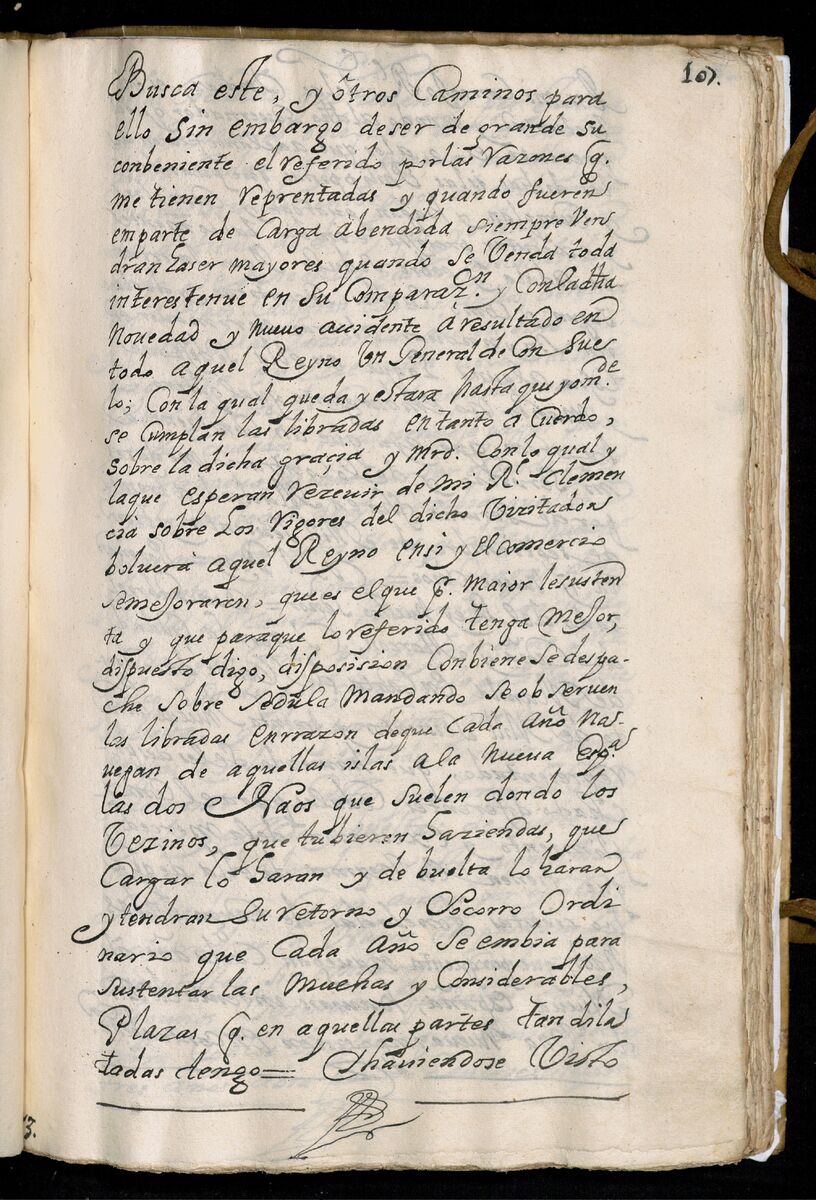 107.
Busca este, y otros Caminos para
ello sin embargo deser de grande su
conbeniente el referido por las razones q.
me tienen reprentadas y quando fueren
emparte de Carga abendida siempre ven
dran haser mayores quando se venda toda
interes tenue en su Comparaz.on y Con la dha
Nouedad y nueuo accidente a resultado en
todo aquel Reyno Un General de Con sue
lo; Con la qual queda y estara hasta que yo m.de
se Cumplan las libradas en tanto a Cuerdo,
sobre la dicha graçia y Mrd. Con lo qual y
la que esperan rezeuir de mi R.l Clemen
cia sobre los rigores del dicho Vizitador
boluera aquel Reyno ensi y el comercio
se mejoraren, que es el que p.r maior le susten
ta y que paraque lo referido tenga mejor,
dispuesto digo, disposision Conbiene se despa-
che sobre sedula mandando se obseruen
las libradas enrrazon deque Cada Año na-
uegan de aquellas islas a la nueua Esp.a
las dos Naos que suelen dondo los
Vezinos, que tubieren haziendas, que
Cargar lo haran y de buelta lo haran
y tendran su retorno y Socorro Ordi
nario que Cada Año se embia para
sustentar las muchas y Considerables,
Plazas q. en aquellas partes tan dila
tadas tengo = Y hauiendose Visto
3.